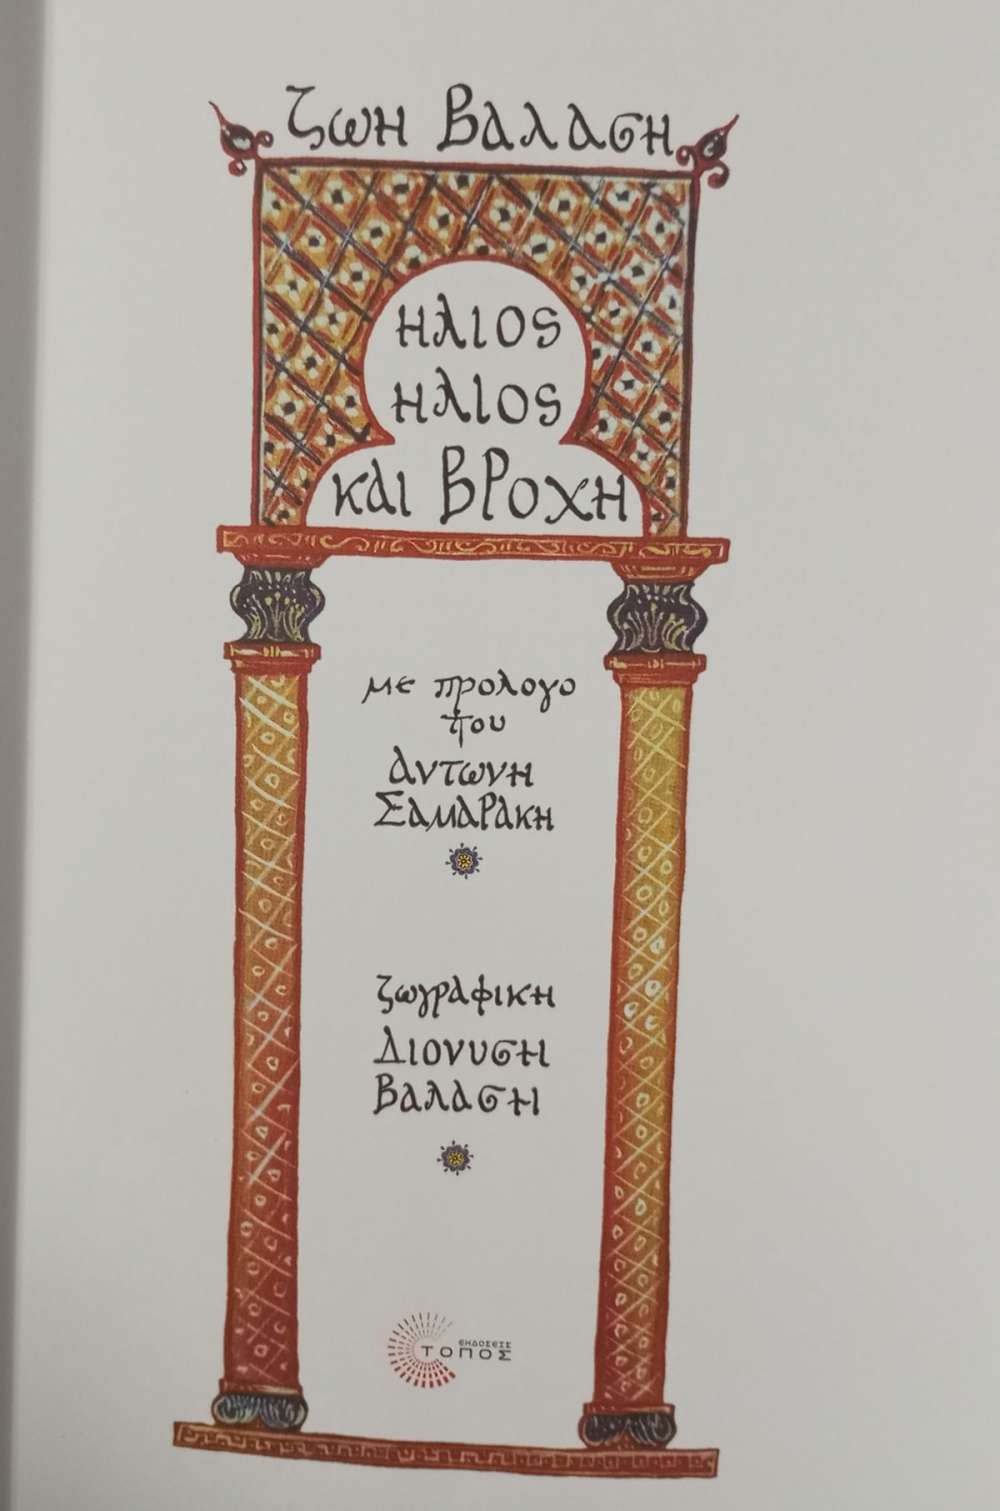 ζωη Βαλαση
ηλιος
ηλιος
και Βροχη
με προλογο
του
Αντωνη
Σαμαρακη
ζωγραφικη
Διονυση
Βαλαση
ΕΚΔΟΣΕΙΣ
ΤΟΠΟΣ